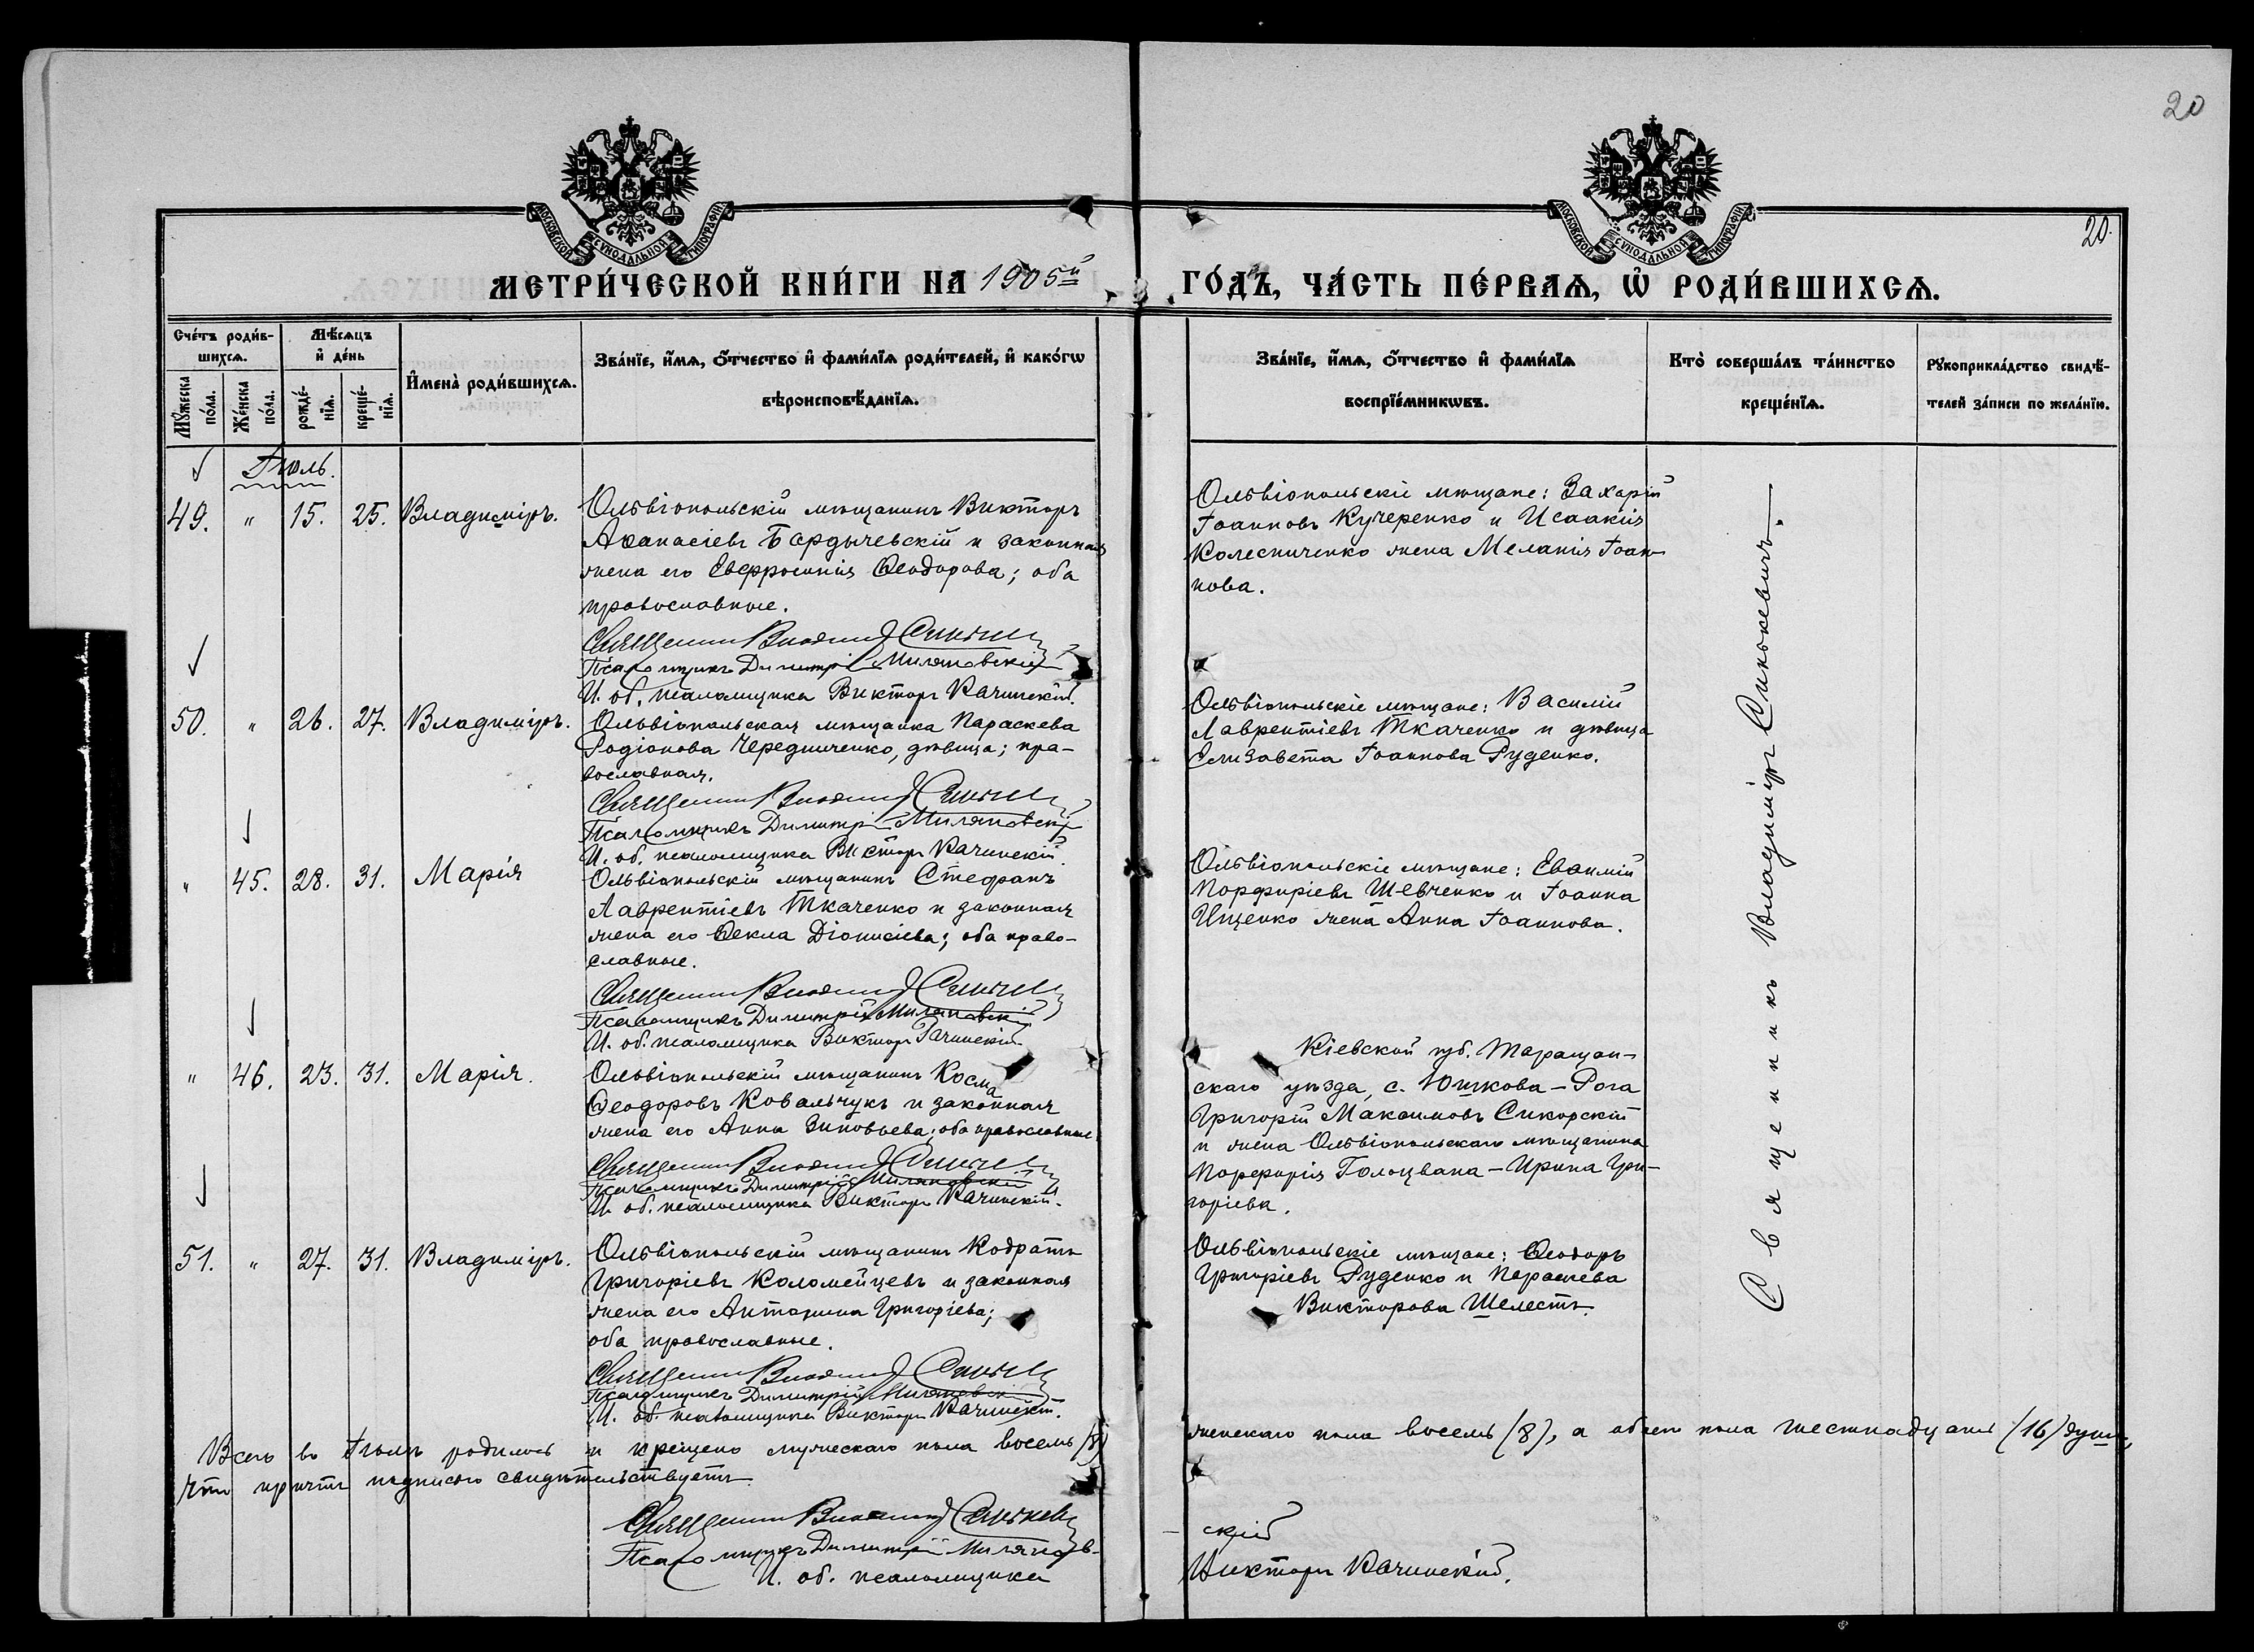 20
20.
МОСКОВСКОЙ СѴНОДАЛЬНОЙ ТИПОГРАФІИ
МОСКОВСКОЙ СѴНОДАЛЬНОЙ ТИПОГРАФІИ
МЕТРИ́ЧЕСКОЙ КНИ́ГИ НА 1905й ГО́ДЪ, ЧА́СТЬ ПЕ́РВАѦ, Ѡ҆ РОДИ́ВШИХСѦ.
Сче́тъ роди́в-
шихсѧ.
Мѣ́сѧцъ
и҆ де́нь
Мꙋ́жеска
по́ла.
Же́нска
по́ла.
рожде́-
нїѧ.
креще́-
нїѧ.
И҆мена̀ роди́вшихсѧ.
Зва́нїе, и҆́мѧ, ѻ҆́тчество и҆ фами́лїѧ роди́телей, и҆ како́гѡ
вѣроисповѣ́данїѧ.
Зва́нїе, и҆́мѧ, ѻ҆́тчество и҆ фами́лїѧ
воспрїе́мникѡвъ.
Кто̀ соверша́лъ та́инство
креще́нїѧ.
Рꙋкоприкла́дство свидѣ́-
телей за́писи по жела́нїю.
Іюль.
49. " 15. 25. Владиміръ.
Ольвіопольскій мѣщанинъ Викторъ
Аѳанасіевъ Бардычевскій и законная
жена его Евфросинія Ѳеодорова; оба
православные.
Священникъ Владиміръ Синькевичъ
Псаломщикъ Димитрій Миляновскій
И. об. псаломщика Викторъ Рачинскій.
Ольвіопольскіе мѣщане: Захарій
Іоанновъ Кучеренко и Исаакія
Колесниченко жена Меланія Іоан-
нова.
50. " 26. 27. Владиміръ.
Ольвіопольская мѣщанка Параскева
Родіонова Чередниченко, дѣвица; пра-
вославная.
Священникъ Владиміръ Синькевичъ
Псаломщикъ Димитрій Миляновскій
И. об. псаломщика Викторъ Рачинскій.
Ольвіопольскіе мѣщане: Василій
Лаврентіевъ Ткаченко и дѣвица
Елизавета Іоаннова Руденко.
" 45. 28. 31. Марія
Ольвіопольскій мѣщанинъ Стефанъ
Лаврентіевъ Ткаченко и законная
жена его Ѳекла Діонисіева; оба право-
славные.
Священникъ Владиміръ Синькевичъ
Псаломщикъ Димитрій Миляновскій
И. об. псаломщика Викторъ Рачинскій
Ольвіопольскіе мѣщане: Евѳимій
Порфиріевъ Шевченко и Іоанна
Ищенко жена Анна Іоаннова.
" 46. 23. 31. Марія.
Ольвіопольскій мѣщанинъ Косма
Ѳеодоровъ Ковальчукъ и законная
жена его Анна Зиновьева; оба православные
Священникъ Владиміръ Синькевичъ
Псаломщикъ Димитрій Миляновскій
И. об. псаломщика Викторъ Рачинскій.
Кіевской губ. Таращан-
скаго уѣзда, с. Юшкова-Рога
Григорій Максимовъ Сикорскій
и жена Ольвіопольскаго мѣщанина
Порфирія Голоцвана - Ирина Гри-
горіева.
51. " 27. 31. Владиміръ.
Ольвіопольскій мѣщанинъ Кодратъ
Григоріевъ Коломейцевъ и законная
жена его Антонина Григоріева;
оба православные.
Священникъ Владиміръ Синькевичъ
Псаломщикъ Димитрій Миляновскій
И. об. псаломщика Викторъ Рачинскій.
Ольвіопольскіе мѣщане: Ѳеодоръ
Григоріевъ Руденко и Параскева
Викторова Шелестъ.
Священникъ Владиміръ Синькевичъ.
Всего въ Іюлѣ родилось и крещено мужескаго пола восемь (8) женскаго пола восемь (8), а обоего пола шестнадцать (16) душъ,
что причтъ подписью свидѣтельствуетъ
Священникъ Владиміръ Синькевичъ
Псаломщикъ Димитрій Миляновскій
И. об. псаломщика Викторъ Рачинскій.